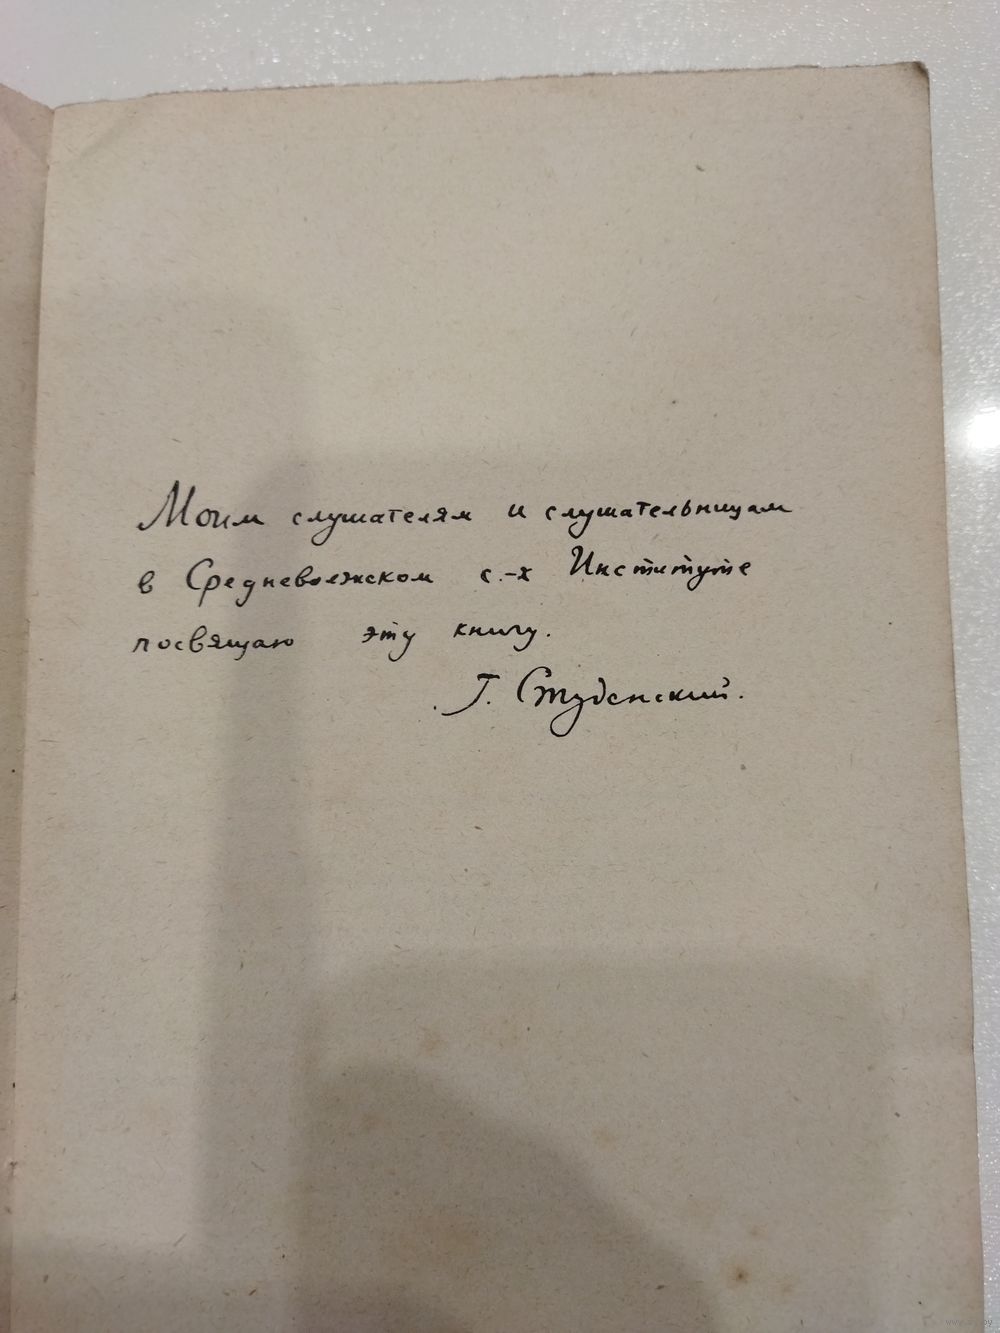 Моим слушателям и слушательницам
в Средневолжском с.-х Институте
посвящаю эту книгу.
Г. Студенский.